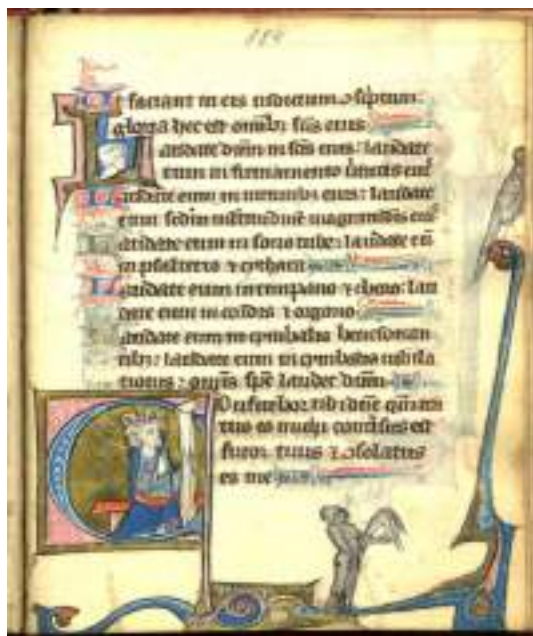 Ut faciant in eis iudicium
gloria hec est omībꝫ sc̄is eius
Laudate dn̄m in sc̄is eius: laudate
eum in firmamento
Laudate eum in eius: laudate
eum
Laudate eum in sono tube: laudate eū
in psalterio ⁊ cythara
Laudate eum in timpano ⁊ choro: lau
date eum in cordis ⁊ organo
Laudate eum in cymbalis benesonan
tibꝫ: laudate eum in cymbalis iubila
tionis: om̄is sp̄c laudet dn̄m
Confitebor tibi dn̄e qm̄ ira
tus es michi est
furor tuus ⁊ ꝯsolatus
es me